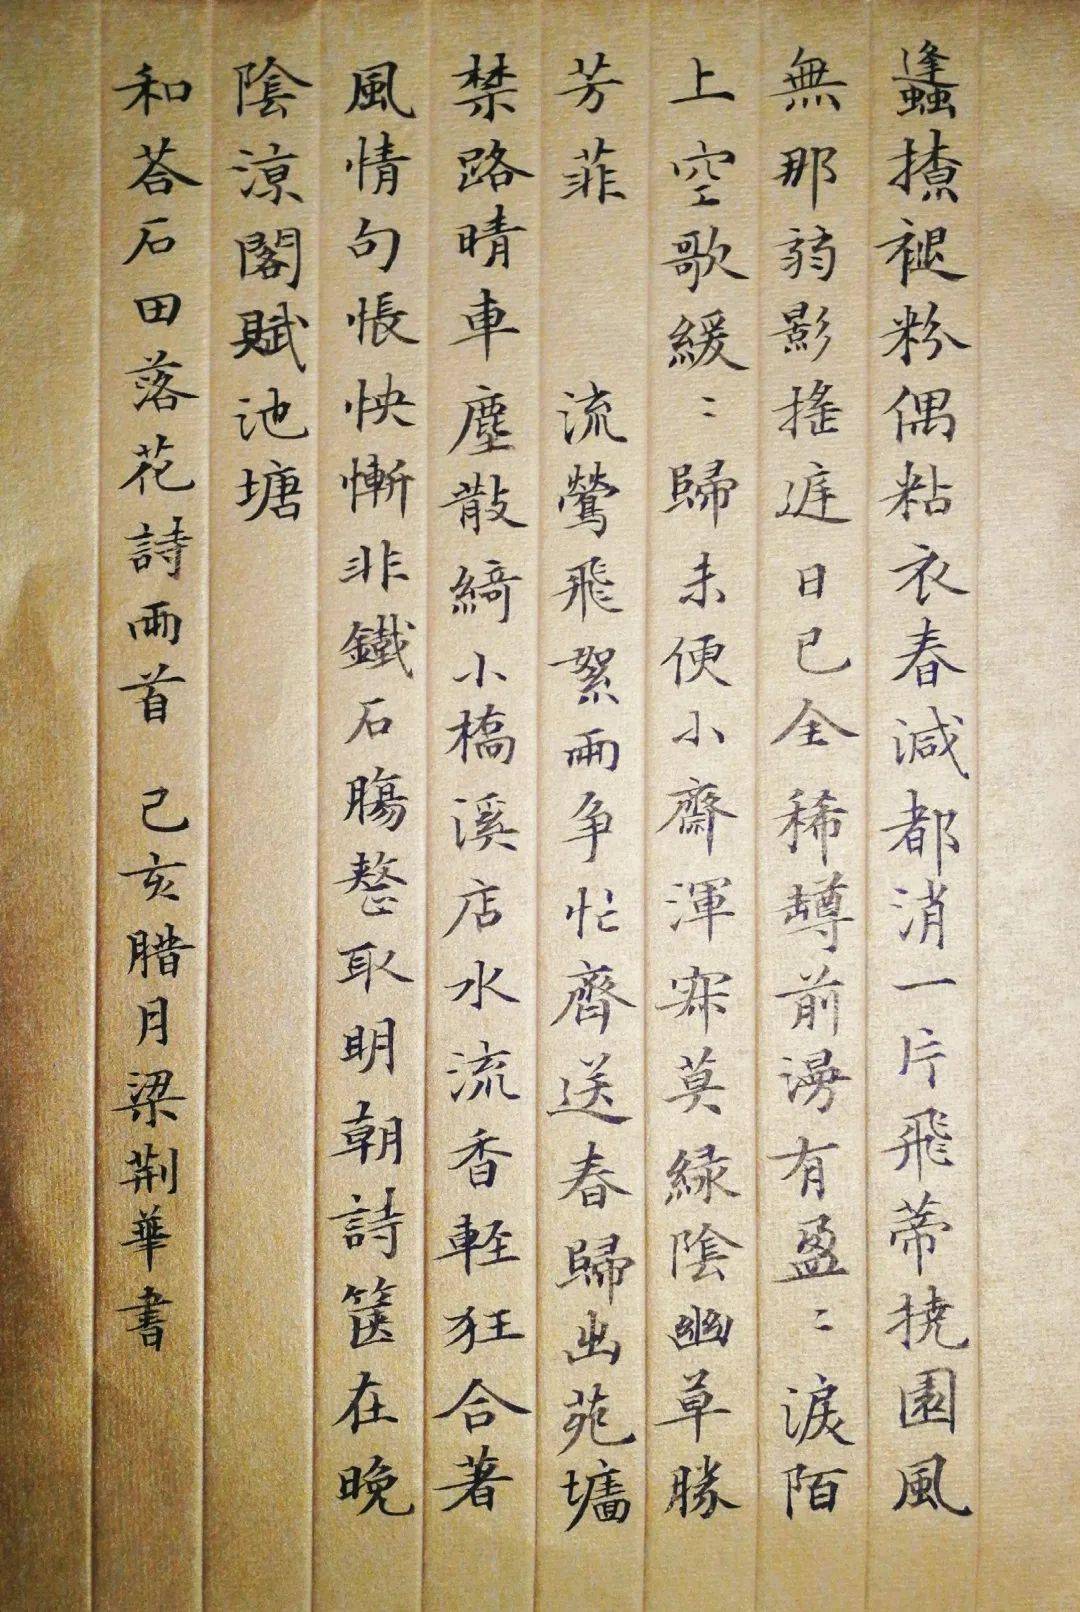 蠭揸褪粉偶粘衣春減都消一片飛蒂撓園風
無那弱影搖庭日已全稀罇前漫有盈〻淚陌
上空歌緩〻歸未便小齋渾寂莫緑陰幽草勝
芳菲 流鶯飛絮兩争忙齊送春歸出苑墻
禁路晴車塵散綺小橋溪店水流香軽狂合著
風情句悵怏慚非鐵石腸整取明朝詩篋在晚
陰涼閣賦池塘
和荅石田落花詩兩首 己亥腊月梁荆華書